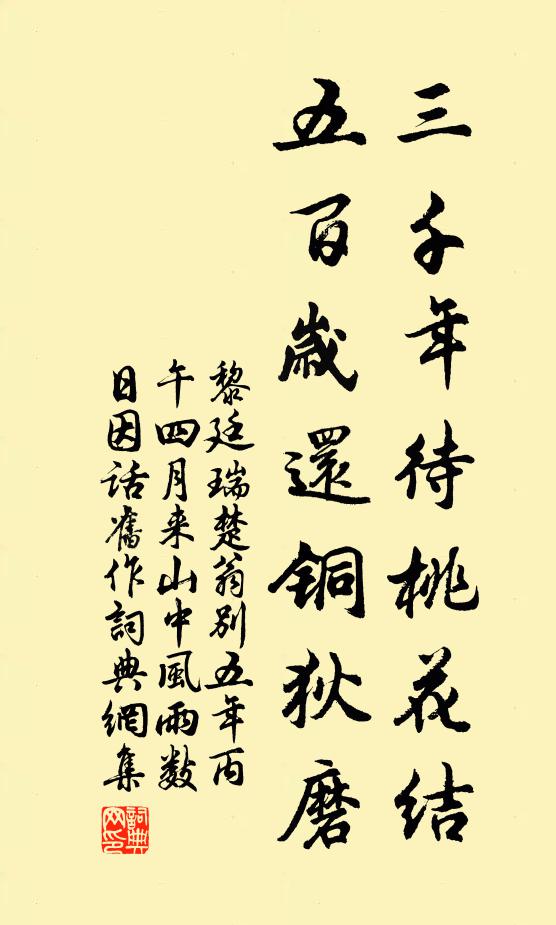 三千年待桃花结
五百歲還銅狄磨
黎廷瑞楚翁别五年丙
午四月来山中風雨数
日因话舊作詞典網集
詞典
网印